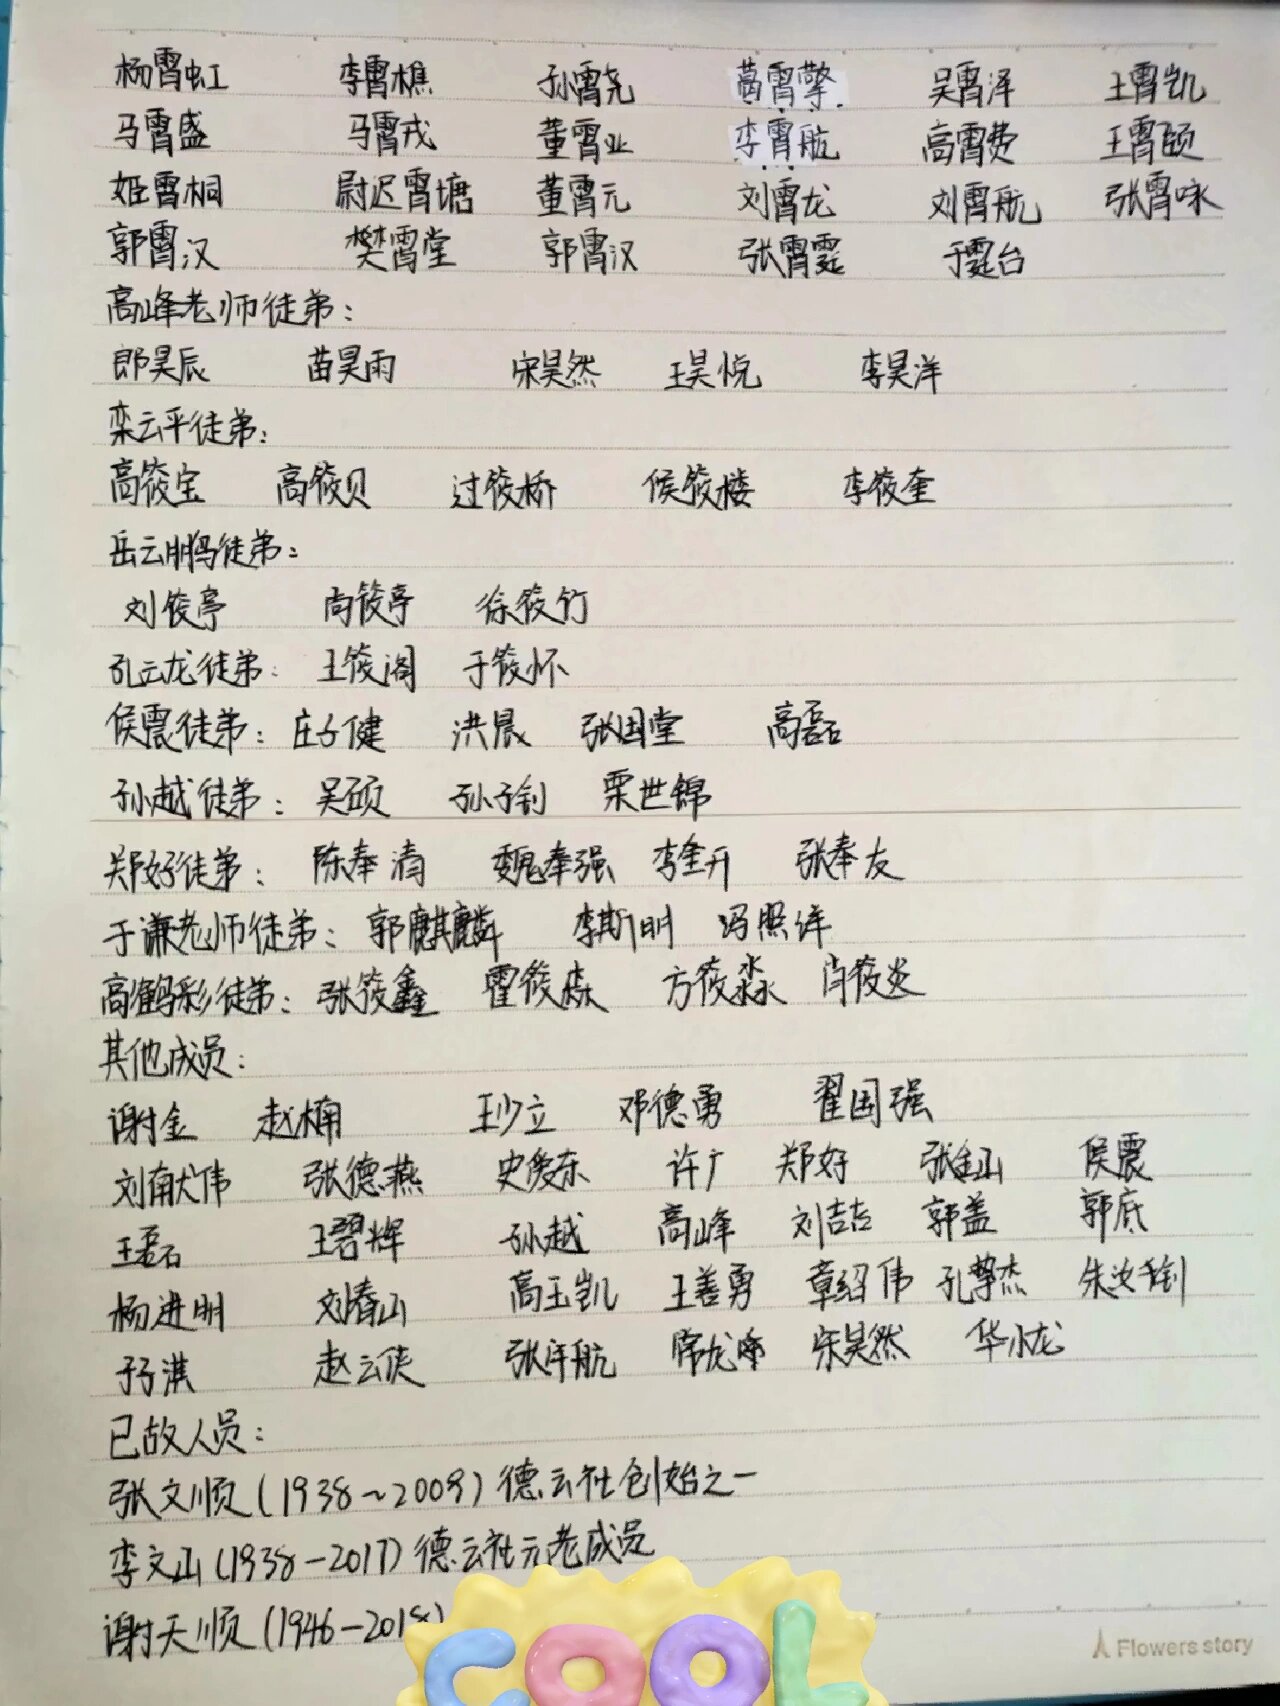 杨霄虹 李霄樵 孙霄尧 茵霄擎 吴霄泽 王霄凯
马霄盛 马霄戎 董霄业 李霄航 高霄费 王霄颐
姬霄桐 尉迟霄塘 董霄元 刘霄龙 刘霄航 张霄咏
郭霄汉 樊霄堂 郭霄汉 张霄霆 于霆台
高峰老师徒弟：
郎昊辰 苗昊雨 宋昊然 王昊悦 李昊洋
栾云平徒弟：
高筱宝 高筱贝 过筱桥 候筱楼 李筱奎
岳云鹏徒弟：
刘筱亭 尚筱亭 徐筱竹
孔云龙徒弟：王筱阁 于筱怀
侯震徒弟：庄子健 洪晨 张国堂 高磊
孙越徒弟：吴硕 孙子钊 栗世锦
郑好徒弟：陈奉清 魏奉强 李奎升 张奉友
于谦老师徒弟：郭麒麟 李斯明 冯照洋
高鹤彩徒弟：张筱鑫 霍筱森 方筱淼 闫筱炎
其他成员：
谢金 赵楠 王少立 邓德勇 翟国强
刘献伟 张德燕 史爱东 许广 郑好 张金山 侯震
王磊 王碧辉 孙越 高峰 刘喆 郭盖 郭底
杨进明 刘春山 高玉凯 王善勇 章绍伟 孔擎杰 朱汝钊
于子淇 赵云侠 张宇航 宋昊然 华小龙
已故人员：
张文顺（1938～2009）德云社创始之一
李文山（1938－2017）德云社元老成员
谢天顺（1946－2018）
COOL
Flowers story